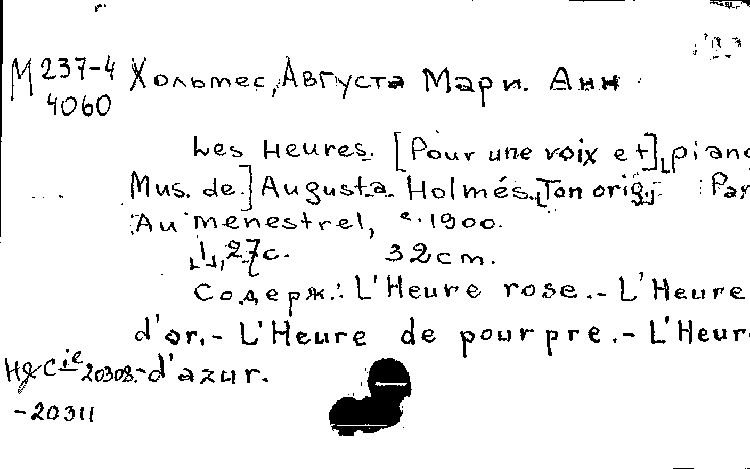 М 237-4 Хольмес, Августа Мари. Анн
4060
Les Heures. [Pour une voix et], pianc
Mus. de.] Augusta Holmés. [Ton orig.] Par
Au menestrel, c. 1900.
[1], 27c. 32 cm.
Содерж.: L'Heure rose. - L'Heure
d'or. - L'Heure de pourpre. - L'Heur
H&Cie 20308.- d'azur.
-20311